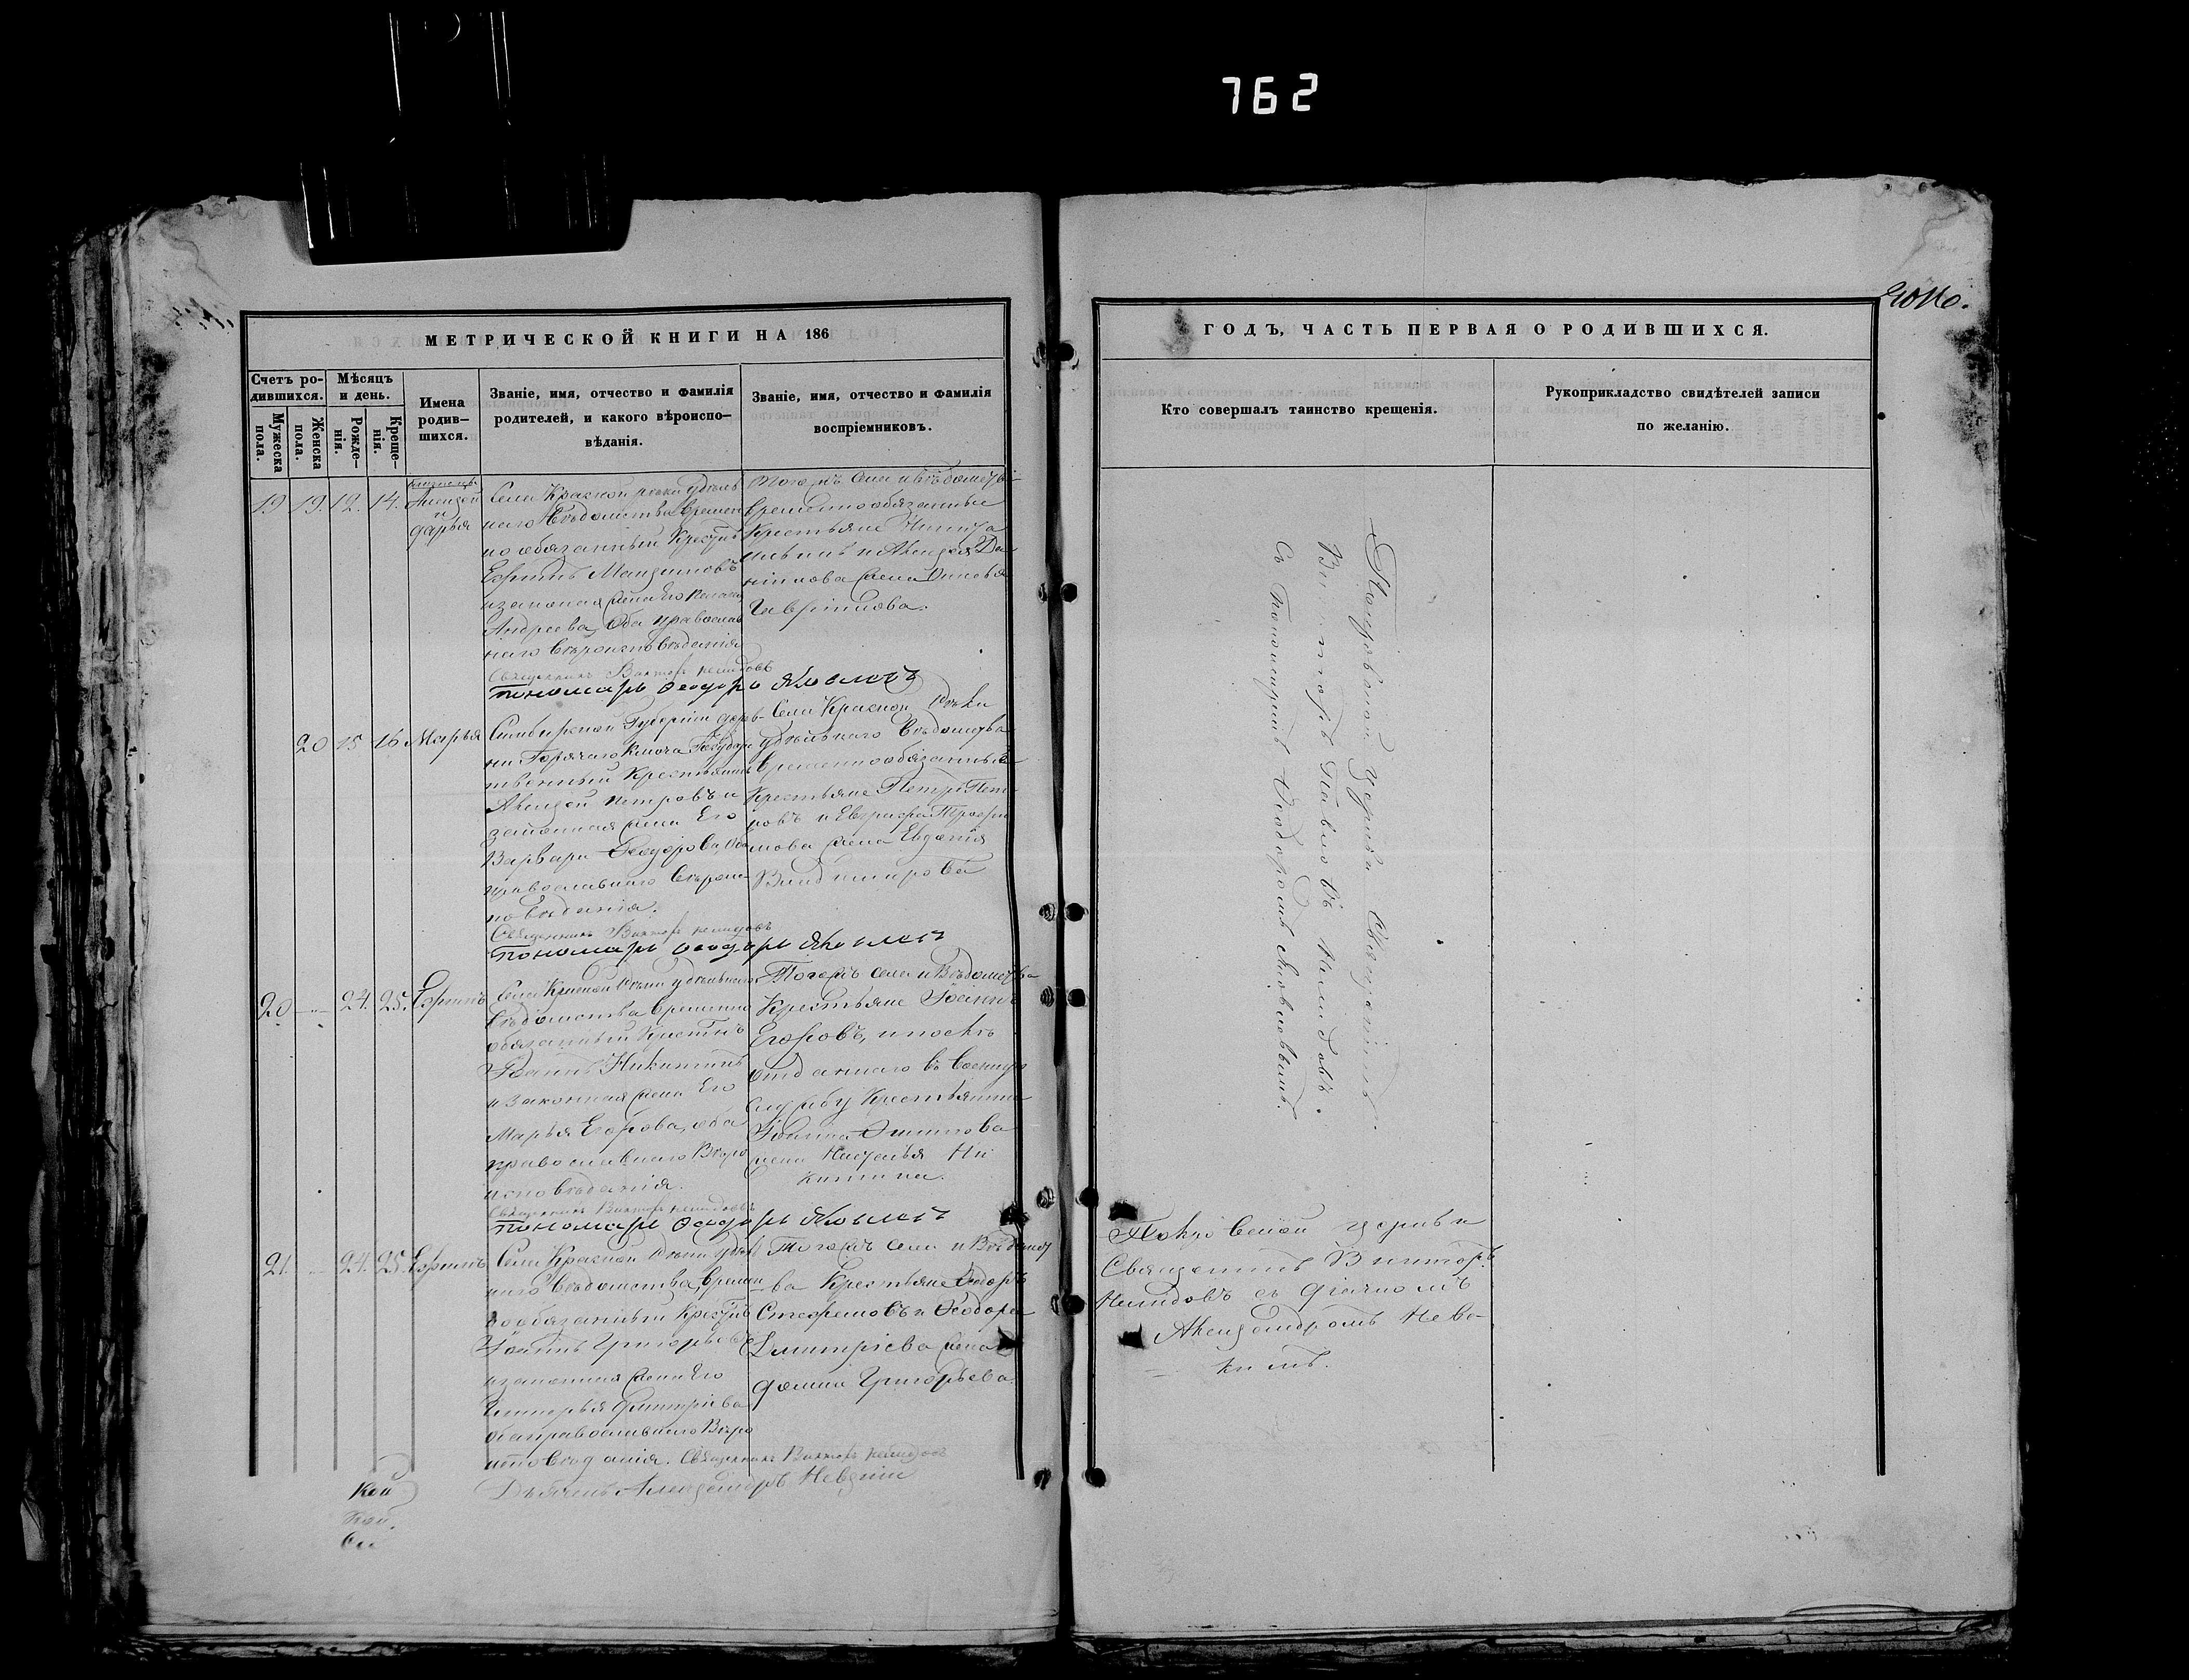 762
МЕТРИЧЕСКОЙ КНИГИ НА 186
Счетъ ро-
дившихся.
Мужеска
пола.
Женска
пола.
Мѣсяцъ
и день.
Рожде-
нія.
Креще-
нія.
Имена
родив-
шихся.
Званіе, имя, отчество и фамилія
родителей, и какого вѣроиспо-
вѣданія.
Званіе, имя, отчество и фамилія
воспріемниковъ.
19 19. 12. 14.
Алексей
и
Дарья
Села Красной рѣки удѣль
наго Вѣдомства времен
но обязанный Крест
Ефимъ
и законная жена Его
Андреева, Оба православ
наго Вѣроисповѣданія
Священникъ Викторъ Нелидовъ
пономарь Ѳеодоръ Яковлевъ
Тогожъ села и вѣдомства
временнообязанные
Крестьяне Никита
Ильинъ и Алексея Да
ніилова жена
Гаврилова.
20 15 16 Марья
Симбирской Губерніи дерев
ни Горячаго Ключа Государ
твенный Крестьянинъ
Алексей Петровъ и
законная жена Его
Варвара Ѳеодорова, оба
православнаго Вѣроис
повѣданія.
Священникъ Викторъ Нелидовъ
пономарь Ѳеодоръ Яковлевъ
Села Красной Рѣки
удѣльнаго Вѣдомства
временнообязанные
Крестьяне Петръ Пет
ровъ и Евграфа Трофи
мова жена Евдокія
Владимирова
20 24. 25. Ефимъ
Села Красной Рѣки удѣльнаго
Вѣдомства временно
обязанный Крест
Іоаннъ Никитинъ
и Законная жена Его
Марья Егорова, оба
православнаго Вѣро
исповѣданія.
Священникъ Викторъ Нелидовъ
пономарь Ѳеодоръ Яковлевъ
Тогожъ села и Вѣдомства
Крестьяне Іоаннъ
Егоровъ, и
отданнаго въ военную
службу Крестьянина
Іоанна
жена Наталья Ни
китина.
21. 24. 25 Ефимъ
Села Красной Рѣки удѣль
наго Вѣдомства, времен
нообязанный Крест
Іоаннъ Григорьевъ
и законная жена Его
Гликерья Димитріева
оба православнаго Вѣро
исповѣданія. Священникъ Викторъ Нелидовъ
Дьяконъ Александръ Невзкинъ
Тогожъ села и Вѣдомст
ва Крестьяне Ѳедоръ
Стефановъ и Ѳеодора
Дмитріева жена
Домна Григорьева.
Кой
Кой
Си
ГОДЪ, ЧАСТЬ ПЕРВАЯ О РОДИВШИХСЯ.
Кто совершалъ таинство крещенія.
Рукоприкладство свидѣтелей записи
по желанію.
Покровской Церкви Священникъ
Викторъ Павловъ Нелидовъ.
Съ Пономаремъ Ѳеодоромъ Яковлевымъ.
Покровской церкви
Священникъ Викторъ
Нелидовъ съ діакономъ
Александромъ Нев-